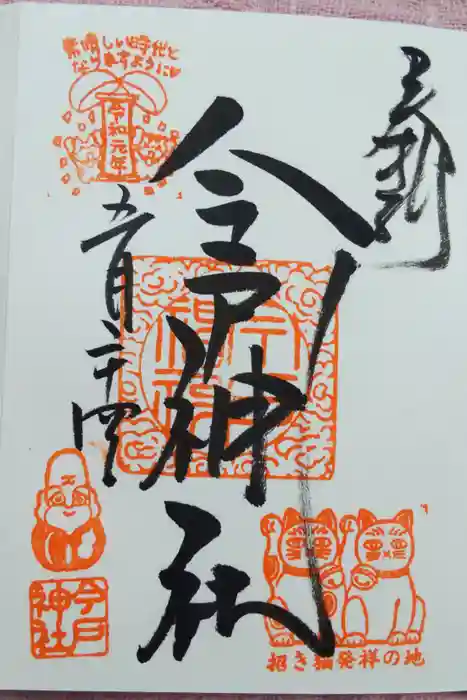 奉拝
今戸神社
素晴しい時代と
なりますように
令和元年
五月二十四
今戸
神社
招き猫発祥の地